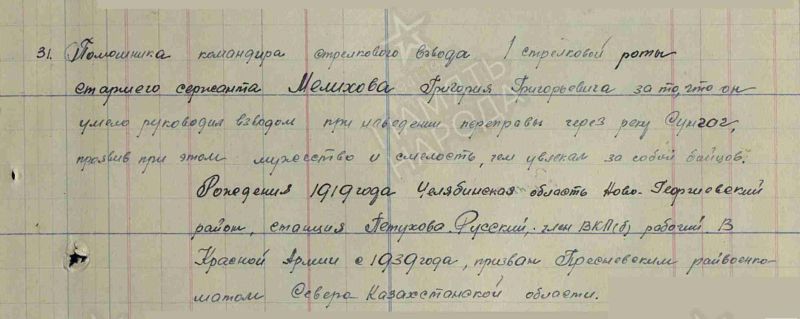 31. Помошника командира стрелкового взвода 1 стрелковой роты
старшего сержанта Мелихова Григория Григорьевича за то, что он
умело руководил взводом при наведении переправы через реку Сунгач,
проявив при этом мужество и смелость, чем увлекал за собой бойцов.
Рождения 1919 года Челябинская область Ново-Георгиевский
район, станция Петухова. Русский, член ВКП(б) рабочий В
Красной Армии с 1939 года, призван Пресневским райвоенко-
матом Северо Казахстанской области.
ПАМЯТЬ
НАРОДА